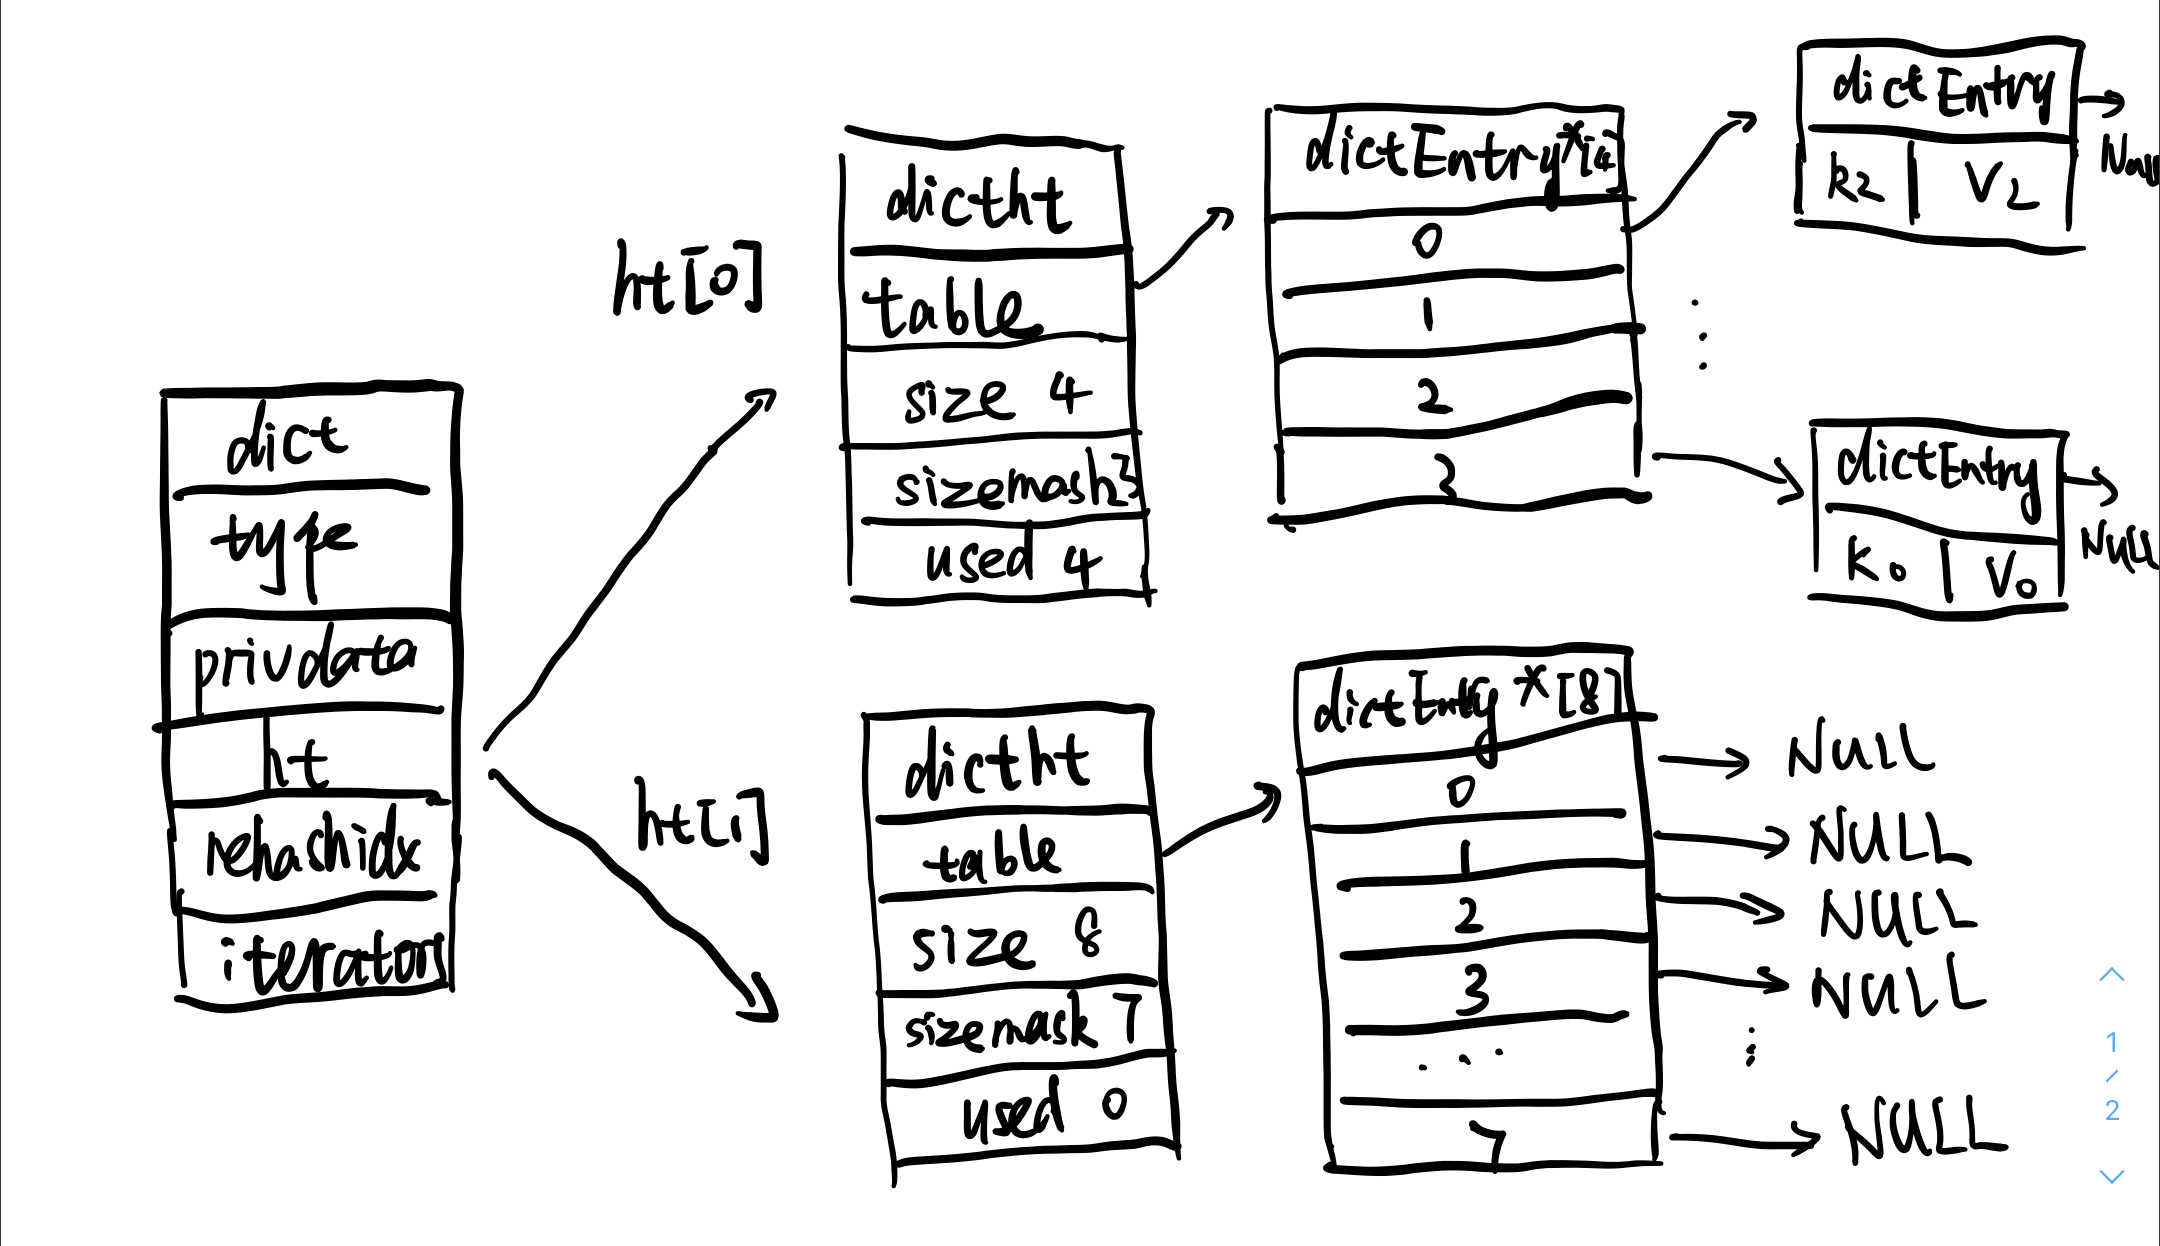 dict
type
privdata
ht
rehashidx
iterators
ht[0]
dictht
table
size 4
sizemash3
used 4
dictEntry*[4]
0
1
2
3
dictEntry
k2 | V2
dictEntry
k0 | V0
NULL
ht[1]
dictht
table
size 8
sizemask 7
used 0
dictEntry*[8]
0
1
2
3
...
7
NULL
NULL
NULL
NULL
NULL
1
/
2